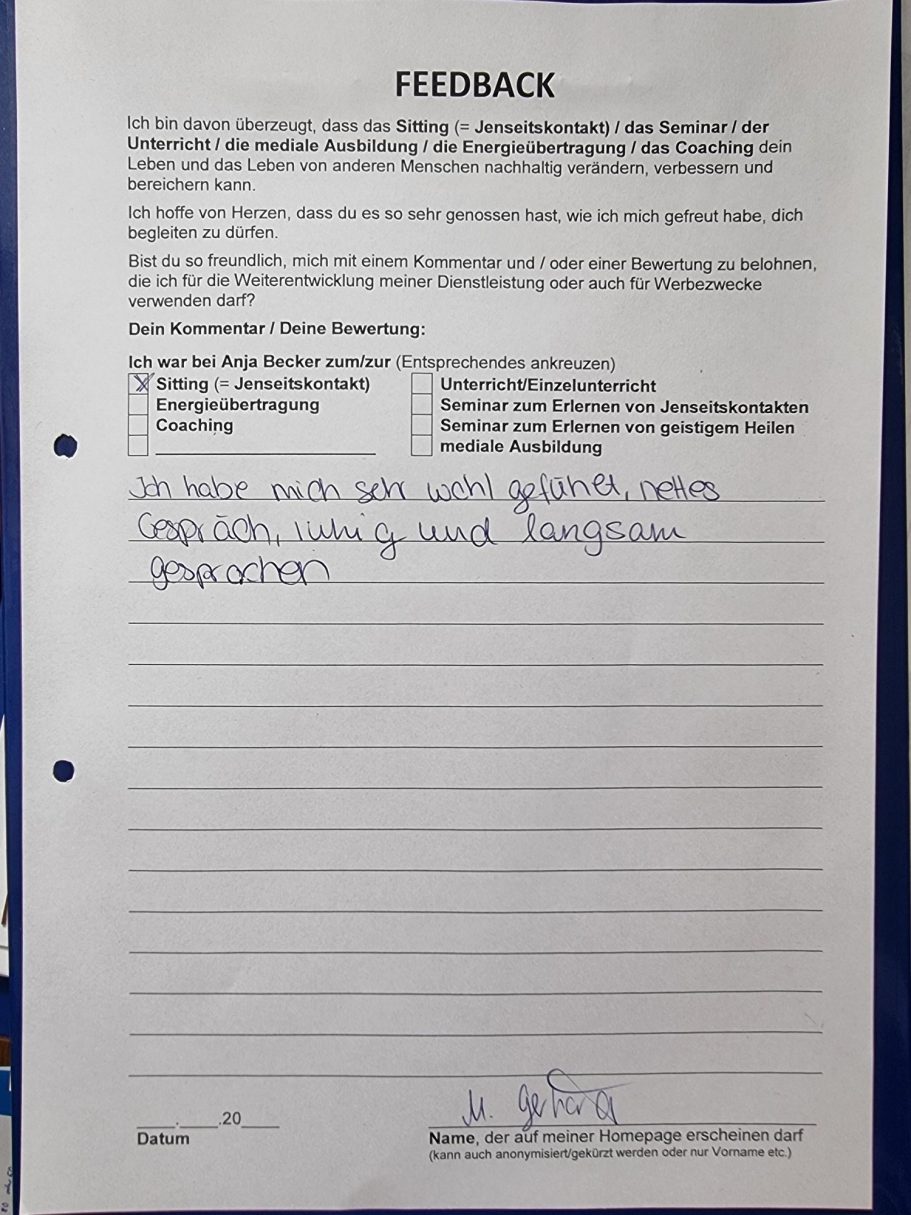 FEEDBACK
Ich bin davon überzeugt, dass das Sitting (= Jenseitskontakt) / das Seminar / der
Unterricht / die mediale Ausbildung / die Energieübertragung / das Coaching dein
Leben und das Leben von anderen Menschen nachhaltig verändern, verbessern und
bereichern kann.
Ich hoffe von Herzen, dass du es so sehr genossen hast, wie ich mich gefreut habe, dich
begleiten zu dürfen.
Bist du so freundlich, mich mit einem Kommentar und / oder einer Bewertung zu belohnen,
die ich für die Weiterentwicklung meiner Dienstleistung oder auch für Werbezwecke
verwenden darf?
Dein Kommentar / Deine Bewertung:
Ich war bei Anja Becker zum/zur (Entsprechendes ankreuzen)
X Sitting (= Jenseitskontakt)
Energieübertragung
Coaching
Unterricht/Einzelunterricht
Seminar zum Erlernen von Jenseitskontakten
Seminar zum Erlernen von geistigem Heilen
mediale Ausbildung
Ich habe mich sehr wohl gefühlt, nettes
Gespräch, ruhig und langsam
gesprochen
___.____.20____
Datum
M. Gerhardt
Name, der auf meiner Homepage erscheinen darf
(kann auch anonymisiert/gekürzt werden oder nur Vorname etc.)